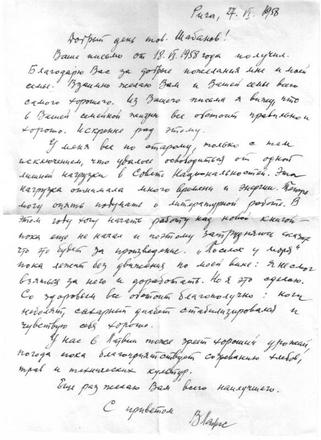 Рига, 27. VI. 1958
Добрый день тов. Шабанов!
Ваше письмо от 18. VI. 1958 получил.
Благодарю Вас за добрые пожелания мне и моей
семье. Взаимно желаю Вам и Вашей семье всего
самого хорошего. Из Вашего письма я вижу, что
в Вашей семейной жизни все обстоит правильно и
хорошо. Искренне рад этому.
У меня все по старому, только с тем
исключением, что удалось освободиться от одной
лишней нагрузки в Совете Национальностей. Эта
нагрузка отнимала много времени и энергии. Теперь
могу опять подумать о литературной работе. В
этом году хочу начать работу над новой книгой –
пока еще не начал и поэтому затрудняюсь сказать
что это будет за произведение. "Поселок у моря"
пока лежит без движения по моей вине: я не смог
взяться за него и доработать. Но я это сделаю.
Со здоровьем все обстоит благополучно: ноги
не болят, сахарный диабет стабилизировался и
чувствую себя хорошо.
У нас в Латвии тоже зреет хороший урожай,
погода пока благоприятствует созреванию хлебов,
трав и технических культур.
Еще раз желаю Вам всего наилучшего.
С приветом
В Лацис